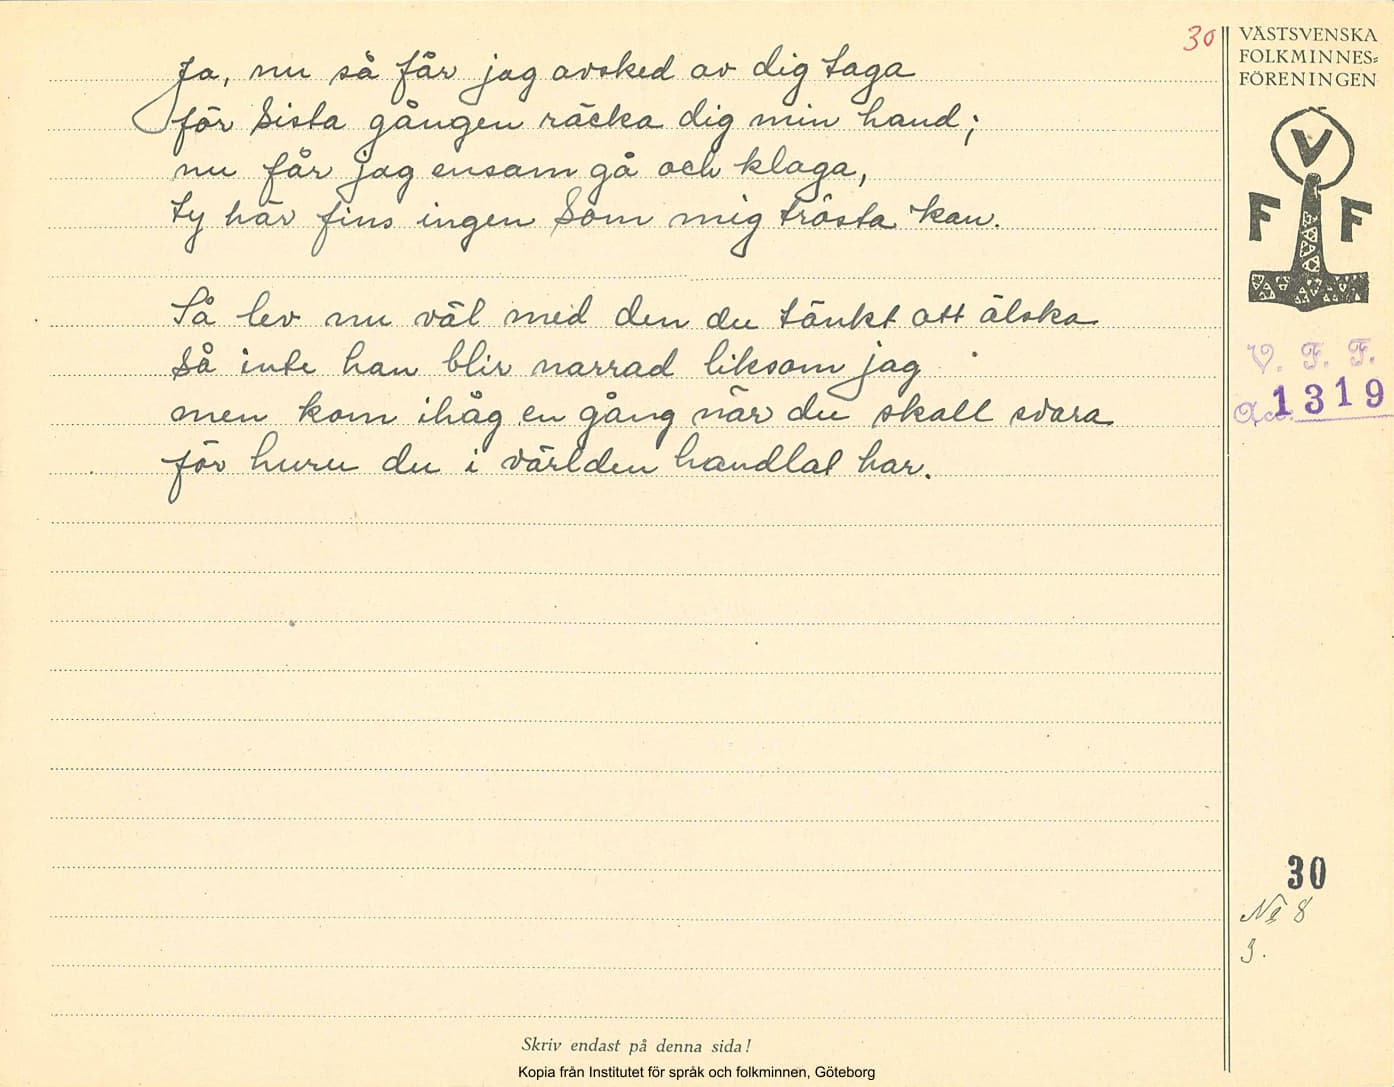 30
Ja, nu så får jag avsked av dig taga
för sista gången räcka dig min hand;
nu får jag ensam gå och klaga,
ty här fins ingen som mig trösta kan.
Så lev nu väl med den du tänkt att älska
så inte han blir narrad liksom jag
men kom ihåg en gång när du skall svara
för huru du i världen handlat har.
VÄSTSVENSKA
FOLKMINNES=
FÖRENINGEN
V
F F
V. F. F.
Acc. 1319
30
Nº 8
3.
Skriv endast på denna sida!
Kopia från Institutet för språk och folkminnen, Göteborg